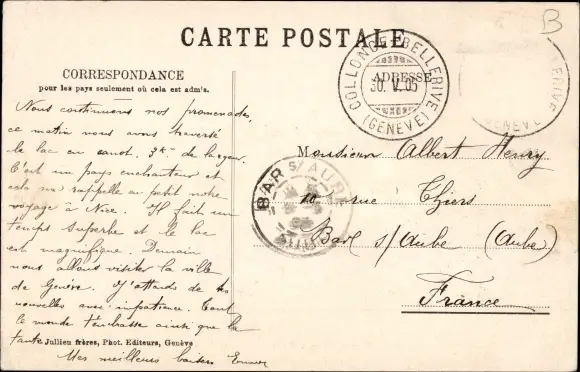 CARTE POSTALE
CORRESPONDANCE
pour les pays seulement où cela est admis.
Nous continuons nos promenades,
ce matin nous avons traversé
le lac en canot. 3 k. de largeur.
C'est un pays enchanteur et
cela me rappelle un petit notre
voyage à Nice. Il fait un
temps superbe et le lac
est magnifique. Demain
nous allons visiter la ville
de Genève. J'attends de tes
nouvelles avec impatience. Tout
le monde t'embrasse ainsi que ta
tante
Mes meilleurs baisers
Jullien frères, Phot. Editeurs, Genève
B
ADRESSE
COLLONGE-BELLERIVE
30. V. 05
(GENÈVE)
ERIVE
GENÈVE
BAR S/AUBE
Monsieur Albert Henry
10 rue Thiers
Bar s/Aube (Aube)
France